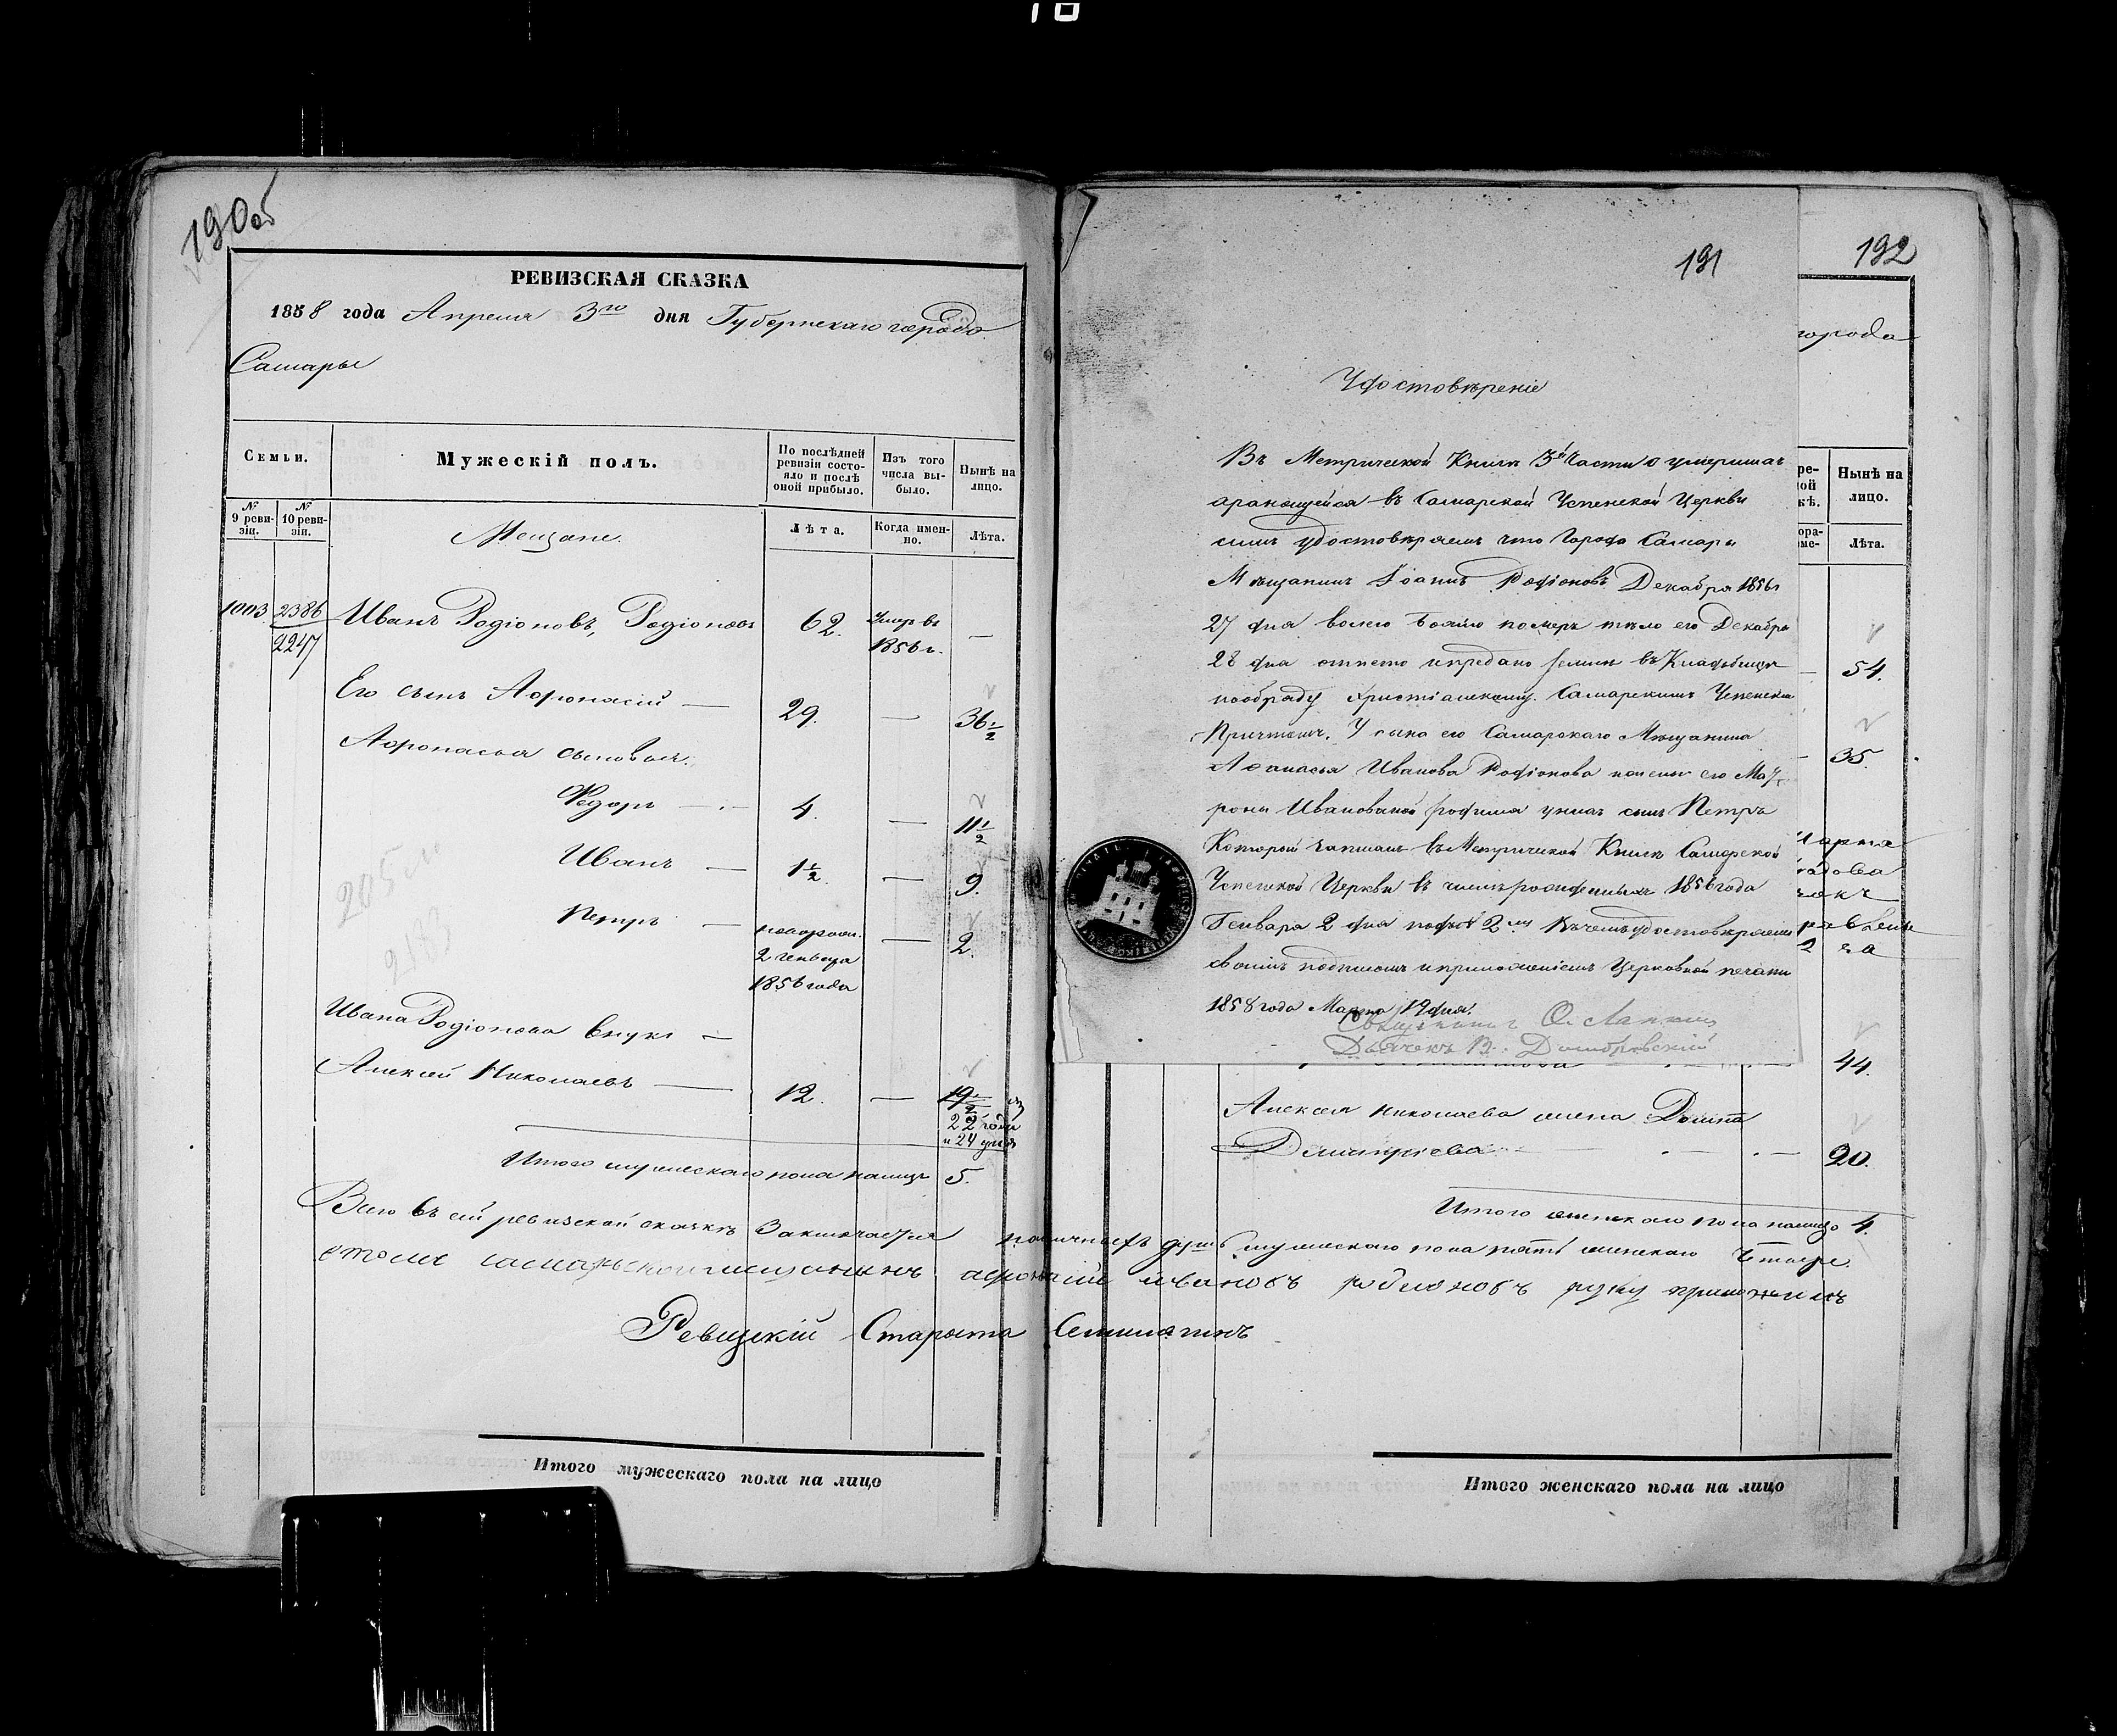 190об
РЕВИЗСКАЯ СКАЗКА
1858 года Апреля 3го дня Губернскаго города
Самары
Семьи.
Мужескій полъ.
По послѣдней ревизіи состояло и послѣ оной прибыло.
Изъ того числа выбыло.
Нынѣ на лицо.
№ 9 ревизіи.
№ 10 ревизіи.
Мещане.
Лѣта.
Когда именно.
Лѣта.
1003 2386 Иванъ Родіоновъ, Родіоновъ 62. Умеръ въ —
2247 1856 г.
Его сынъ Афонасій — 29. — 36 1/2
Афонасья сыновья.
Федоръ — 4. — 11 1/2
Иванъ — 1 1/2. — 9.
Петръ — новорож. — 2.
2 генваря
1856 года
205
2133
Ивана Родіонова внукъ —
Алексей Николаевъ — 12. — 19 1/2
22 года
и 24 дня
Итого мужескаго пола налицо 5.
Всего въ сей ревизской сказкѣ заключается наличныхъ душъ мужескаго пола пять женскаго четыре.
Афонасій Ивановъ Родионовъ руку приложилъ
Ревизскій Староста
Итого мужескаго пола на лицо
191
Удостовѣреніе
Въ Метрической Книгѣ 3й части о умершихъ
хранящейся въ Самарской Успенской Церкви
симъ удостовѣряемъ что Города Самары
Мѣщанинъ Іоаннъ Родіоновъ Декабря 1856
27 дня волею Божіею померъ тѣло его Декабря
28 дня отпето и предано земли въ Кладбище
по обряду христіанскому. Самарскимъ Успенскимъ
Причтомъ. У сына его Самарскаго Мѣщанина
Афанасья Иванова Родіонова жены его Мат-
роны Ивановной родился у нихъ сынъ Петръ
Который записанъ въ Метрической Книгѣ Самарской
Успенской Церкви въ числѣ рожденныхъ 1856 года
Генваря 2 дня подъ № 2мъ Въ чемъ удостовѣряемъ
своимъ подписомъ и приложеніемъ Церковной печати
1858 года Марта 19 дня.
Священникъ
Дьячекъ В. Домбровскій
192
города
Нынѣ на лицо.
Лѣта.
54.
35.
44.
Алексея Николаева жена
Дмитріева — 20.
Итого женскаго пола налицо 4.
Итого женскаго пола на лицо